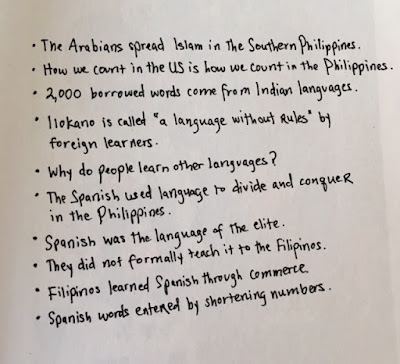 • The Arabians spread Islam in the Southern Philippines.
• How we count in the US is how we count in the Philippines.
• 2,000 borrowed words come from Indian languages.
• Ilokano is called "a language without rules" by
foreign learners.
• Why do people learn other languages?
• The Spanish used language to divide and conquer
in the Philippines.
• Spanish was the language of the elite.
• They did not formally teach it to the Filipinos.
• Filipinos learned Spanish through commerce.
• Spanish words entered by shortening numbers.